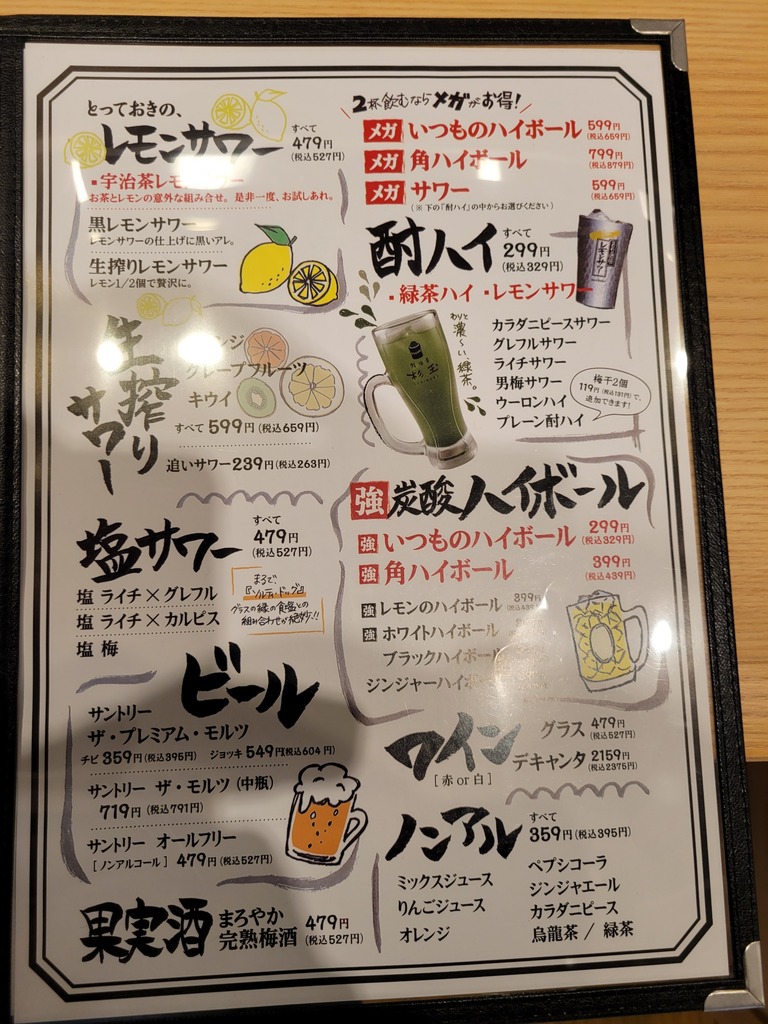 とっておきの、
レモンサワー
すべて
479円
(税込527円)
・宇治茶レモ
お茶とレモンの意外な組み合せ。是非一度、お試しあれ。
黒レモンサワー
レモンサワーの仕上げに黒いアレ。
生搾りレモンサワー
レモン1/2個で贅沢に。
生搾りサワー
レンジ
グレープフルーツ
キウイ
すべて 599円(税込659円)
追いサワー239円(税込263円)
塩サワー
すべて
479円
(税込527円)
塩 ライチ×グレフル
塩 ライチ×カルピス
塩 梅
まるで、
『ソルティ・ドッグ』
グラスの縁の食塩との
組み合わせが絶妙!!
ビール
サントリー
ザ・プレミアム・モルツ
チビ 359円(税込395円) ジョッキ 549円(税込604円)
サントリー ザ・モルツ(中瓶)
719円(税込791円)
サントリー オールフリー
[ノンアルコール] 479円(税込527円)
果実酒
まろやか
完熟梅酒
479円
(税込527円)
2杯飲むならメガがお得!
メガ いつものハイボール 599円
(税込659円)
メガ 角ハイボール 799円
(税込879円)
メガ サワー 599円
(税込659円)
(※下の「酎ハイ」の中からお選びください)
酎ハイ
すべて
299円
(税込329円)
・緑茶ハイ ・レモンサワー
レモンサワー
わりと濃〜い、緑茶。
杉玉
カラダニピースサワー
グレフルサワー
ライチサワー
男梅サワー
ウーロンハイ
プレーン酎ハイ
梅干2個
119円(税込131円)で、
追加できます!
強炭酸ハイボール
強 いつものハイボール 299円
(税込329円)
強 角ハイボール 399円
(税込439円)
強 レモンのハイボール 399円
強 ホワイトハイボール
ブラックハイボー
ジンジャーハイボ
ワイン
[赤 or 白]
グラス 479円
(税込527円)
デキャンタ 2159円
(税込2375円)
ノンアル
すべて
359円(税込395円)
ミックスジュース
りんごジュース
オレンジ
ペプシコーラ
ジンジャエール
カラダニピース
烏龍茶 / 緑茶